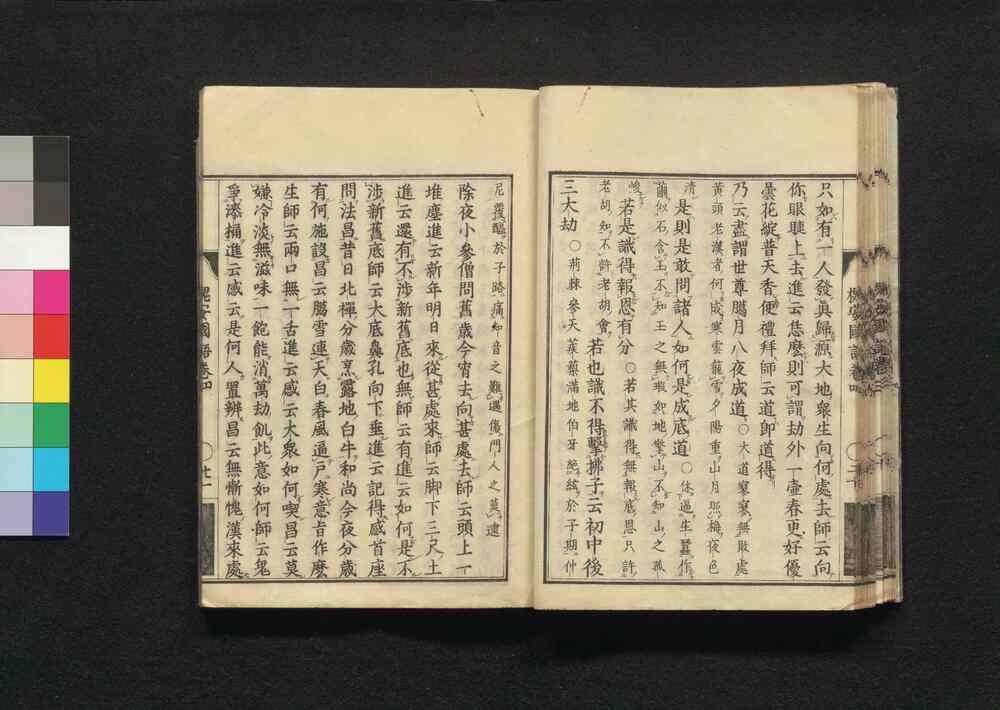 只如有一人發眞歸源大地衆生向何處去師云向
你眼睫上去進云恁麼則可謂劫外一壺春更好優
曇花綻普天香便禮拜師云道卽道得
乃云盡謂世尊臘月八夜成道○大道寥寥無敢處
黃頭老漢者何成寒雲籠雪夕陽重山月照梅夜色
淸是則是敢問諸人如何是成底道○休逼生蠶作
繭似石含玉不知玉之無瑕如地擎山不知山之孤
峻若是識得報恩有分○若其識得無報底恩只許
老胡知不許老胡會若也識不得擊拂子云初中後
三大劫○荊棘參天蒺蔾滿地伯牙絕絃於子期仲
尼覆醢於子路痛知音之難遇傷門人之莫逮
除夜小參僧問舊歲今宵去向甚處去師云頭上一
堆塵進云新年明日來從甚處來師云脚下三尺土
進云還有不涉新舊底也無師云有進云如何是不
涉新舊底師云大底鼻孔向下垂進云記得感首座
問法昌昔日北禪分歲烹露地白牛和尚今夜分歲
有何施設昌云臘雪連天白春風逼戶寒意旨作麼
生師云兩口無一舌進云感云大衆如何喫昌云莫
嫌冷淡無滋味一飽能消萬劫飢此意如何師云鬼
爭漆桶進云感云是何人置辨昌云無慚愧漢來處
槐安國語卷四
○廿一